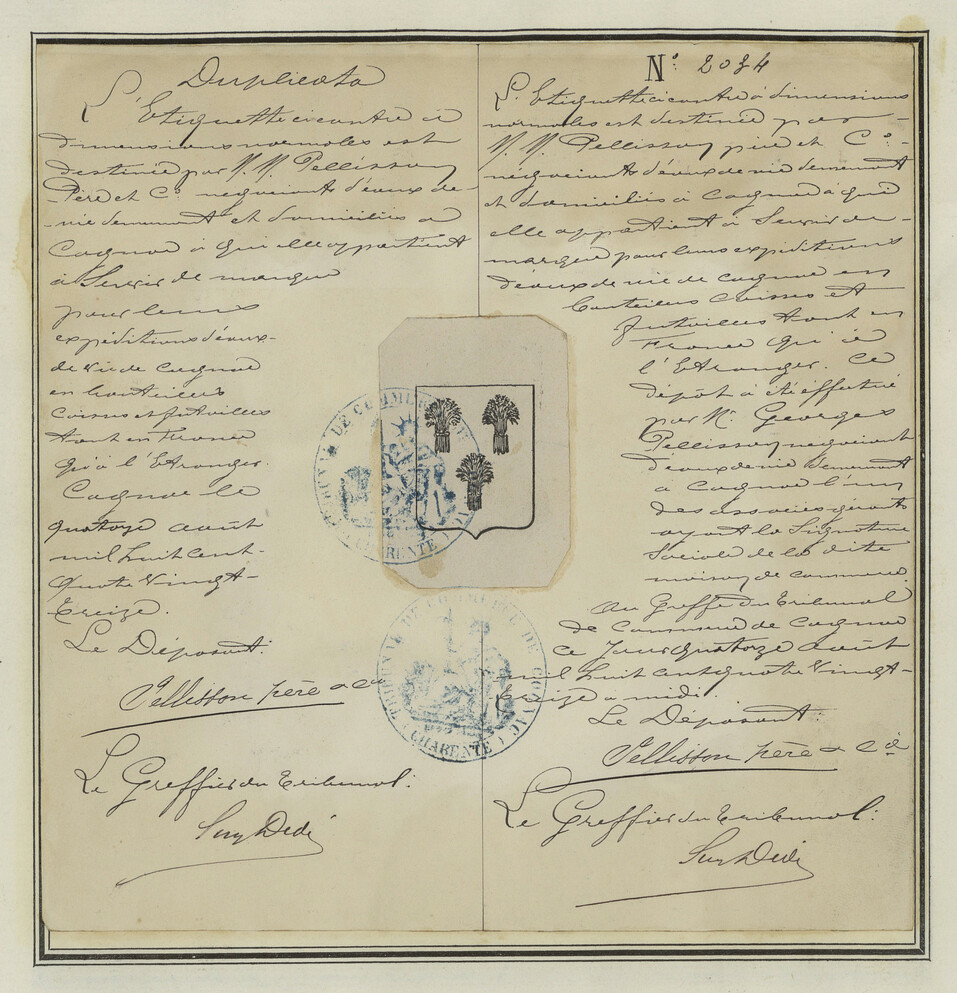 Duplicata
L'Etiquette ci contre à
dimensions normales est
destinée par M. M. Pellisson
Père et Cie negociants d'eaux de
vie demeurant et domiciliés à
Cognac à qui elle appartient
à Servir de marque
pour leurs
expéditions d'eaux
de vie de Cognac
en bouteilles
Caisses et futailles
tant en France
qu'à l'Etranger.
Cognac le
quatorze août
mil huit cent
Quatre Vingt
Treize.
Le Déposant:
Pellisson père & Cie
Le Greffier du Tribunal:
N° 2034
L'Etiquette ci contre à dimensions
normales est destinée par
M. M. Pellisson père et Cie
negociants d'eaux de vie demeurant
et domiciliés à Cognac à qui
elle appartient à Servir de
marque pour leurs expéditions
d'eaux de vie de Cognac en
bouteilles Caisses et
futailles tant en
France qu'à
l'Etranger. Ce
dépôt a été effectué
par Mr Georges
Pellisson negociant
d'eaux de vie demeurant
à Cognac l'un
des associés gérants
ayant la Signature
Sociale de la dite
maison de commerce.
Au Greffe du Tribunal
de Commerce de Cognac
ce Jour quatorze août
mil huit cent quatre Vingt
Treize à midi.
Le Déposant:
Pellisson père & Cie
Le Greffier du Tribunal:
TRIBUNAL DE COMMERCE DE COGNAC
(CHARENTE)
TRIBUNAL DE COMMERCE DE COGNAC
(CHARENTE)